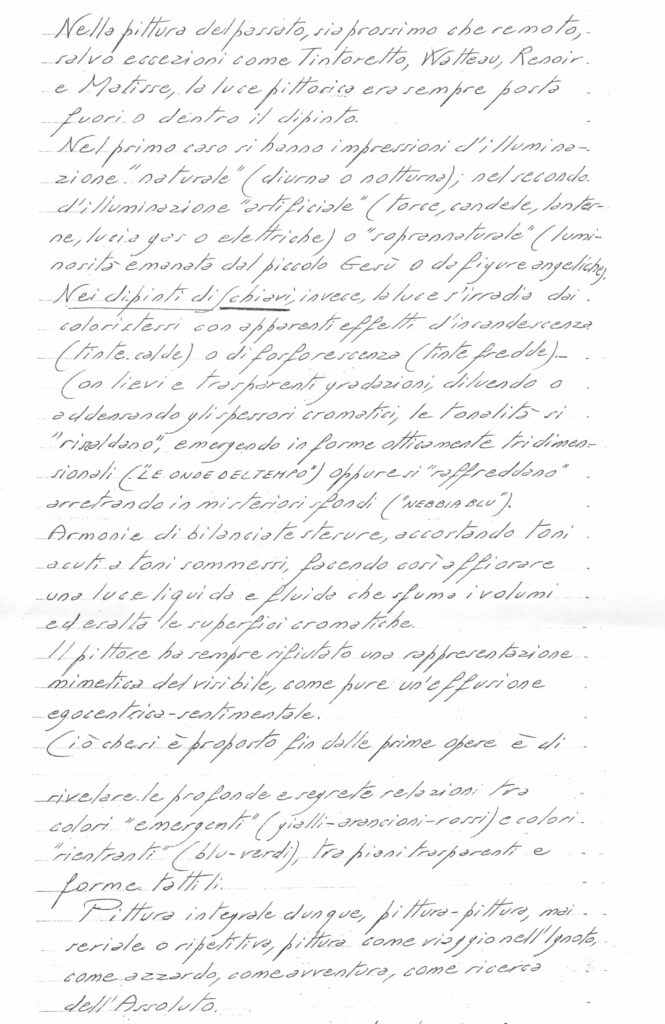 Nella pittura del passato, sia prossimo che remoto,
salvo eccezioni come Tintoretto, Watteau, Renoir
e Matisse, la luce pittorica era sempre posta
fuori o dentro il dipinto.
Nel primo caso si hanno impressioni d'illumina-
zione "naturale" (diurna o notturna); nel secondo
d'illuminazione "artificiale" (torce, candele, lanter-
ne, luci a gas o elettriche) o "soprannaturale" (lumi-
nosità emanata dal piccolo Gesù o da figure angeliche).
Nei dipinti di Schiavi, invece, la luce s'irradia dai
colori stessi con apparenti effetti d'incandescenza
(tinte calde) o di fosforescenza (tinte fredde).—
Con lievi e trasparenti gradazioni, diluendo o
addensando gli spessori cromatici, le tonalità si
"riscaldano", emergendo in forme otticamente tridimen-
sionali ("LE ONDE DEL TEMPO") oppure si "raffreddano"
arretrando in misteriosi sfondi ("NEBBIA BLU").
Armonie di bilanciate stesure, accostando toni
acuti a toni sommessi, facendo così affiorare
una luce liquida e fluida che sfuma i volumi
ed esalta le superfici cromatiche.
Il pittore ha sempre rifiutato una rappresentazione
mimetica del visibile, come pure un'effusione
egocentrica-sentimentale.
Ciò che si è proposto fin dalle prime opere è di
rivelare le profonde e segrete relazioni tra
colori "emergenti" (gialli-arancioni-rossi) e colori
"rientranti" (blu-verdi), tra piani trasparenti e
forme tattili.
Pittura integrale dunque, pittura-pittura, mai
seriale o ripetitiva, pittura come viaggio nell'Ignoto,
come azzardo, come avventura, come ricerca
dell'Assoluto.